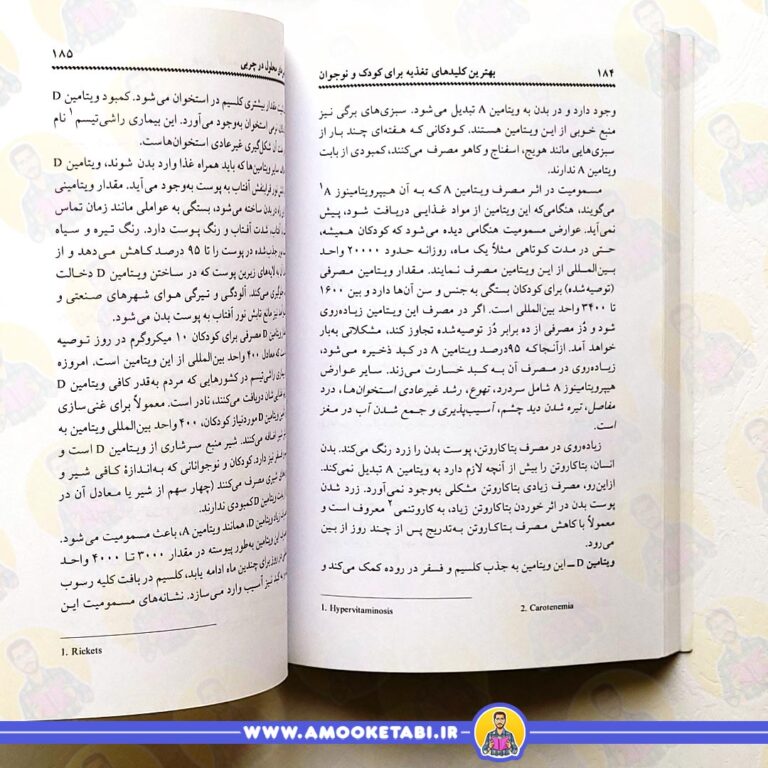 ۱۸۴
بهترین کلیدهای تغذیه برای کودک و نوجوان
وجود دارد و در بدن به ویتامین A تبدیل می‌شود. سبزی‌های برگی نیز
منبع خوبی از این ویتامین هستند. کودکانی که هفته‌ای چند بار از
سبزی‌هایی مانند هویج، اسفناج و کاهو مصرف می‌کنند، کمبودی از بابت
ویتامین A ندارند.
مسمومیت در اثر مصرف ویتامین A که به آن هیپرویتامینوز A۱
می‌گویند، هنگامی‌که این ویتامین از مواد غذایی دریافت شود، پیش
نمی‌آید. عوارض مسمومیت هنگامی دیده می‌شود که کودکان همیشه،
حتی در مدت کوتاهی مثلاً یک ماه، روزانه حدود ۲۰۰۰۰ واحد
بین‌المللی از این ویتامین مصرف نمایند. مقدار ویتامین مصرفی
(توصیه‌شده) برای کودکان بستگی به جنس و سن آن‌ها دارد و بین ۱۶۰۰
تا ۳۴۰۰ واحد بین‌المللی است. اگر در مصرف این ویتامین زیاده‌روی
شود و دُز مصرفی از ده برابر دُز توصیه‌شده تجاوز کند، مشکلاتی به‌بار
خواهد آمد. ازآنجاکه ۹۵درصد ویتامین A در کبد ذخیره می‌شود،
زیاده‌روی در مصرف آن به کبد خسارت می‌زند. سایر عوارض
هیپرویتامینوز A شامل سردرد، تهوع، رشد غیرعادی استخوان‌ها، درد
مفاصل، تیره شدن دید چشم، آسیب‌پذیری و جمع شدن آب در مغز
است.
زیاده‌روی در مصرف بتاکاروتن، پوست بدن را زرد رنگ می‌کند. بدن
انسان، بتاکاروتن را بیش از آنچه لازم دارد به ویتامین A تبدیل نمی‌کند.
ازاین‌رو، مصرف زیادی بتاکاروتن مشکلی به‌وجود نمی‌آورد. زرد شدن
پوست بدن در اثر خوردن بتاکاروتن زیاد، به کاروتنمی۲ معروف است و
معمولاً با کاهش مصرف بتاکاروتن به‌تدریج پس از چند روز از بین
می‌رود.
ویتامین D ــ این ویتامین به جذب کلسیم و فسفر در روده کمک می‌کند و
1. Hypervitaminosis 2. Carotenemia
محلول در چربی
۱۸۵
مقدار بیشتری کلسیم در استخوان می‌شود. کمبود ویتامین D
نرمی استخوان به‌وجود می‌آورد. این بیماری راشی‌تیسم۱ نام
آن شکل‌گیری غیرعادی استخوان‌هاست.
سایر ویتامین‌ها که باید همراه غذا وارد بدن شوند، ویتامین D
نور فرابنفش آفتاب به پوست به‌وجود می‌آید. مقدار ویتامینی
در بدن ساخته می‌شود، بستگی به عواملی مانند زمان تماس
آفتاب، شدت آفتاب و رنگ پوست دارد. رنگ تیره و سیاه
جذب‌شده در پوست را تا ۹۵ درصد کاهش می‌دهد و از
به لایه‌های زیرین پوست که در ساختن ویتامین D دخالت
جلوگیری می‌کند. آلودگی و تیرگی هوای شهرهای صنعتی و
نیز مانع تابش نور آفتاب به پوست بدن می‌شود.
مصرفی برای کودکان ۱۰ میکروگرم در روز توصیه
که معادل ۴۰۰ واحد بین‌المللی از این ویتامین است. امروزه
راشی‌تیسم در کشورهایی که مردم به‌قدر کافی ویتامین D
دریافت می‌کنند، نادر است. معمولاً برای غنی‌سازی
ویتامین D موردنیاز کودکان، ۴۰۰ واحد بین‌المللی ویتامین به
اضافه می‌کنند. شیر منبع سرشاری از ویتامین D است و
نیز دارد. کودکان و نوجوانانی که به‌اندازهٔ کافی شیر و
شیری مصرف می‌کنند (چهار سهم از شیر یا معادل آن در
ویتامین D کمبودی ندارند.
زیاد ویتامین D، همانند ویتامین A، باعث مسمومیت می‌شود.
این ویتامین به‌طور پیوسته در مقدار ۳۰۰۰ تا ۴۰۰۰ واحد
روز برای چندین ماه ادامه یابد، کلسیم در بافت کلیه رسوب
نیز آسیب وارد می‌سازد. نشانه‌های مسمومیت این
1. Rickets
WWW.AMOOKETABI.IR